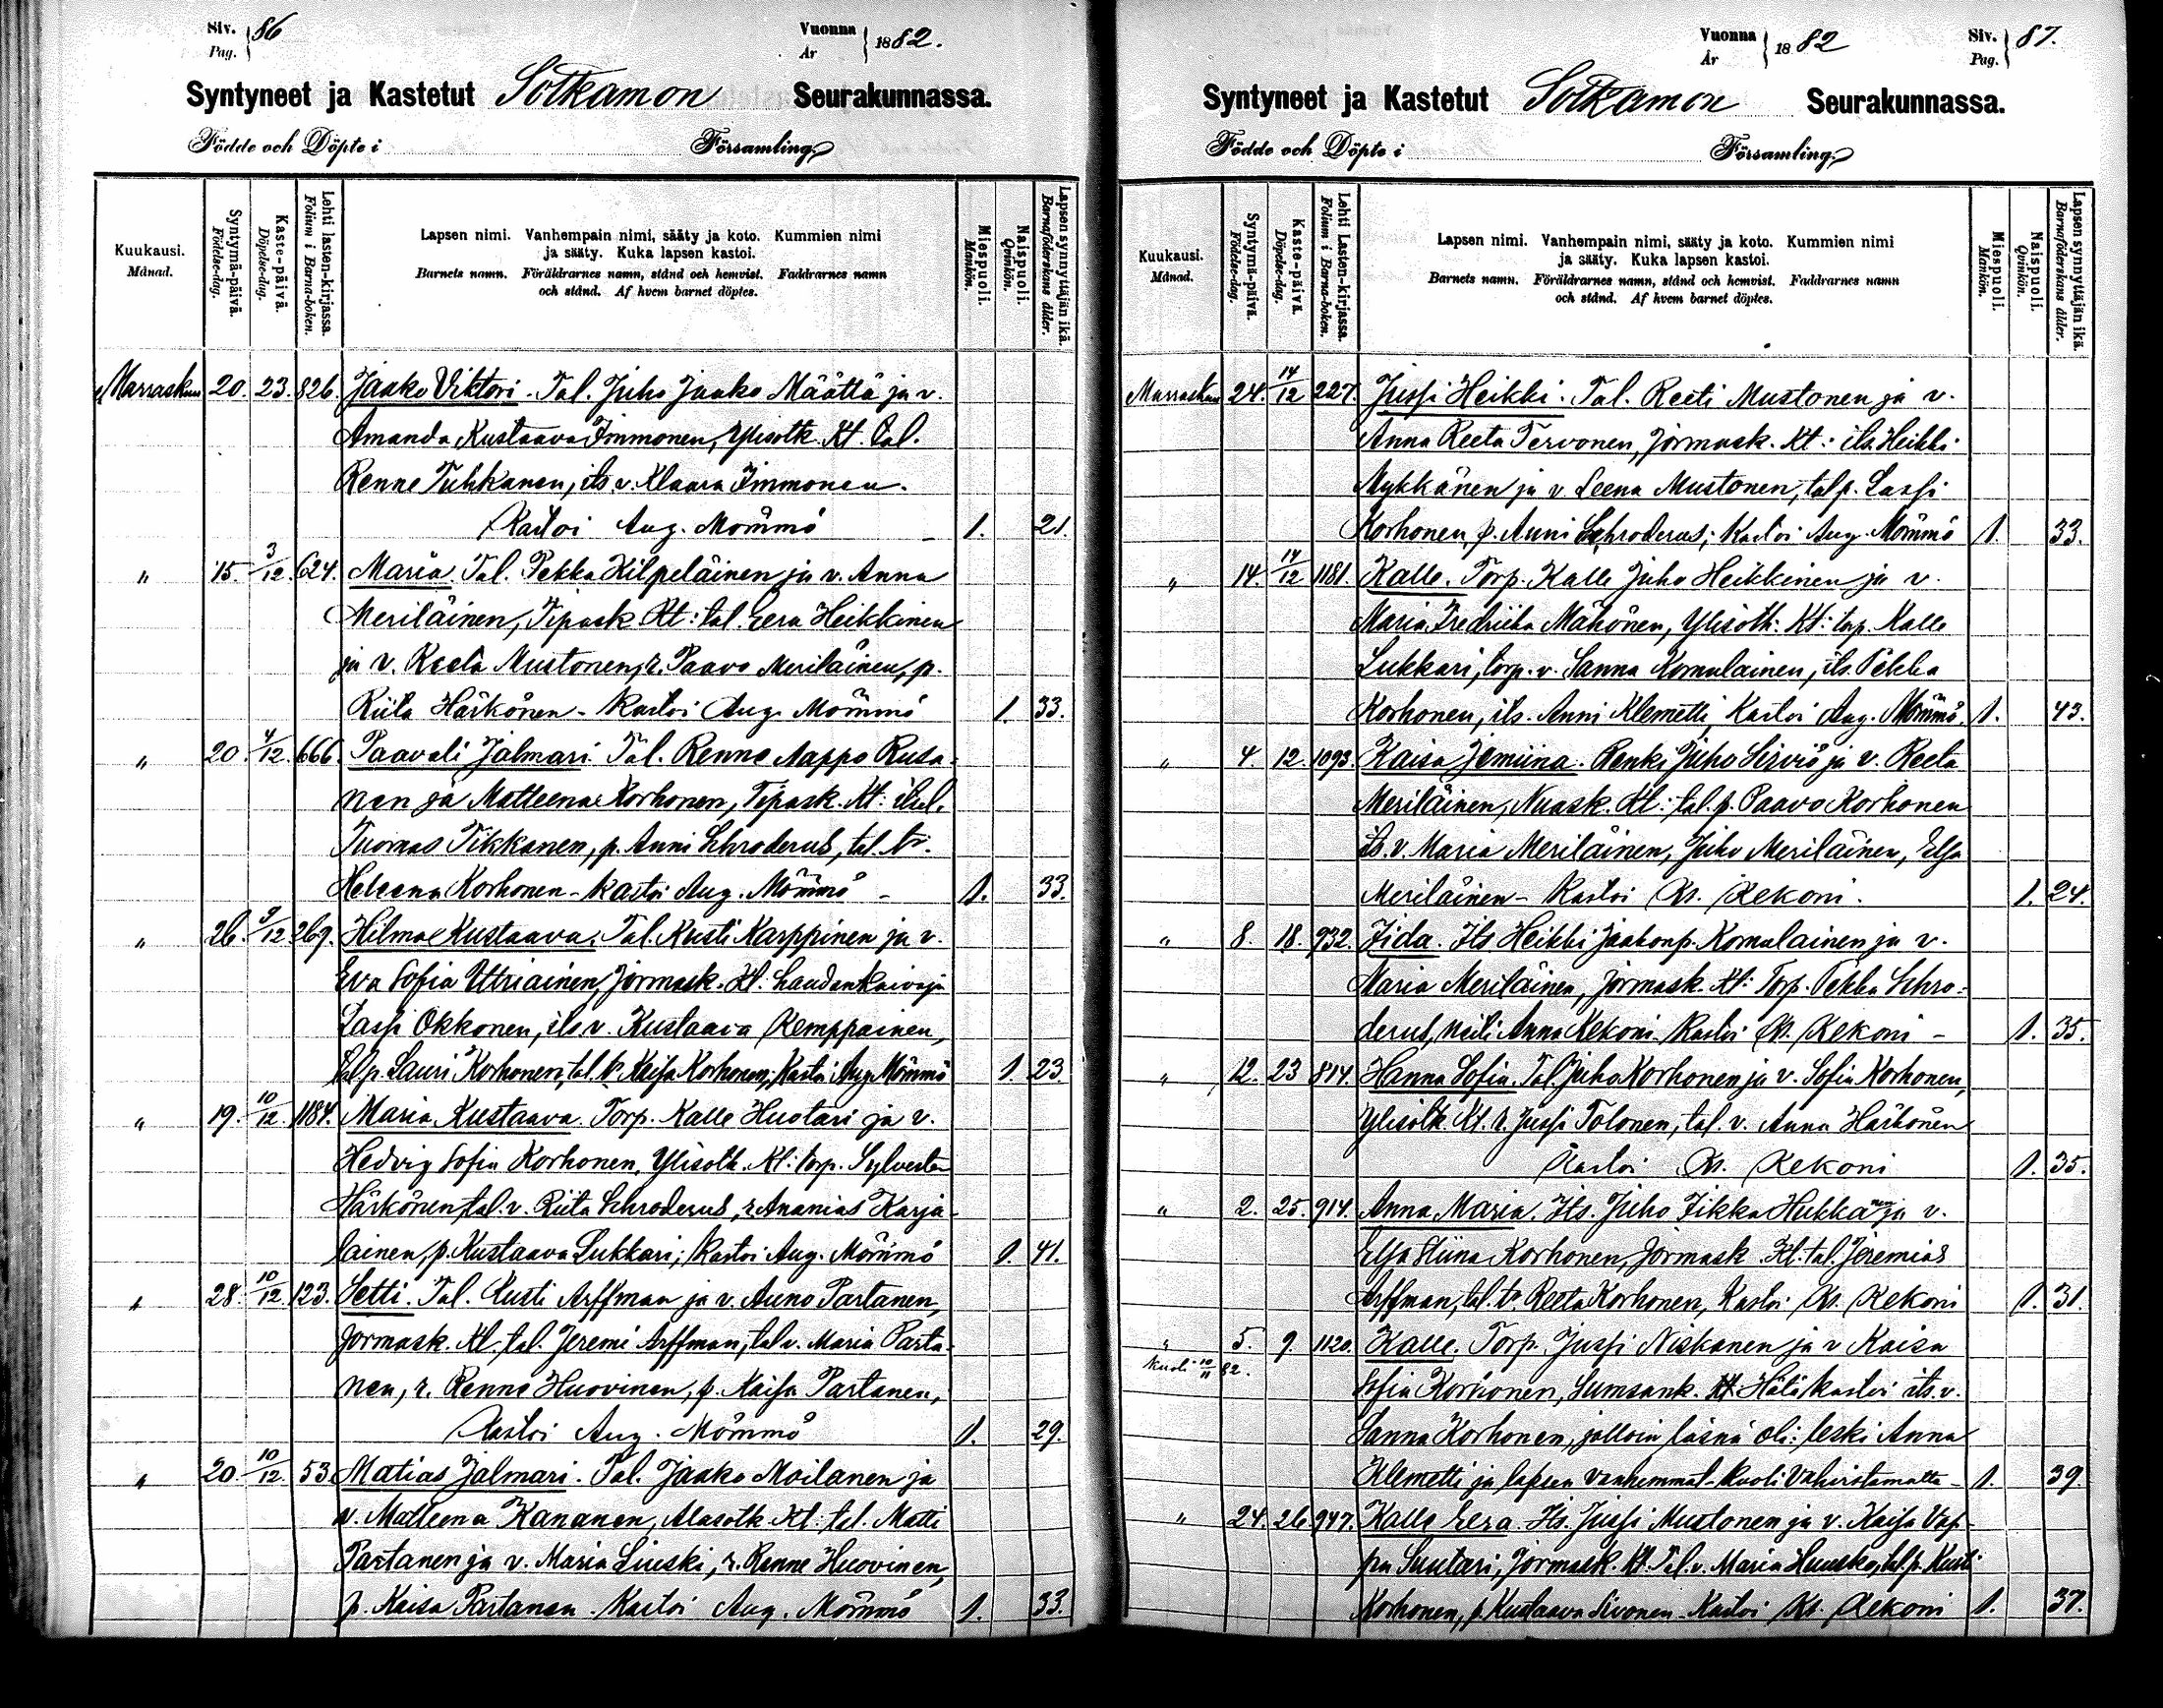 Siv. Pag. 86
Vuonna År 1882.
Syntyneet ja Kastetut Sotkamon Seurakunnassa.
Födde och Döpte i Församling.
Kuukausi. Månad.
Syntymä-päivä. Födelse-dag.
Kaste-päivä. Döpelse-dag.
Lehti lasten-kirjassa. Folium i Barna-boken.
Lapsen nimi. Vanhempain nimi, sääty ja koto. Kummien nimi
ja sääty. Kuka lapsen kastoi.
Barnets namn. Föräldrarnes namn, stånd och hemvist. Faddrarnes namn
och stånd. Af hvem barnet döptes.
Miespuoli. Mankön.
Naispuoli. Qvinkön.
Lapsen synnyttäjän ikä. Barnaföderskans ålder.
Marraskuu 20. 23. 826. Jaako Viktori. Tal. Juho Jaako Määttä ja v.
Amanda Kustaava Immonen, Ylisotk. Kt. tal.
Renne Tuhkanen, its. v. Klaara Immonen.
Kastoi Aug. Mömmö 1. 21.
" 15. 3/12. 624. Maria. Tal. Pekka Kilpeläinen ja v. Anna
Meriläinen, Tipask. Kt: tal. Eera Heikkinen
ja v. Reeta Mustonen, r. Paavo Meriläinen, p.
Riita Härkönen - Kastoi Aug. Mömmö 1. 33.
" 20. 4/12. 666. Paavali Jalmari. Tal. Renne Aappo Rusa-
nen ja Matleena Korhonen, Tipask. Kt: itsel.
Tuomas Tikkanen, p. Anni Schroderus, tal. tr.
Heleena Korhonen - Kastoi Aug. Mömmö - 1. 33.
" 26. 9/12 269. Hilma Kustaava. Tal. Kusti Karppinen ja v.
Eva Sofia Uttriainen, Jormask. Kt: haudankaivaja
Lassi Okkonen, its. v. Kustaava Kemppainen,
tal. p. Lauri Korhonen, tal. tr. Kaisa Korhonen; Kastoi Aug. Mömmö 1. 23
" 19. 10/12. 1184. Maria Kustaava. Torp. Kalle Huotari ja v.
Hedvig Sofia Korhonen, Ylisotk. Kt: torp. Sylvester
Härkönen, tal. v. Riita Schroderus, r. Ananias Karja-
lainen, p. Kustaava Lukkari; Kastoi Aug. Mömmö 1. 41.
" 28. 10/12. 123. Setti. Tal. Kusti Arffman ja v. Auno Partanen,
Jormask. Kt. tal. Jeremi Arffman, tal v. Maria Parta-
nen, r. Renne Huovinen, p. Kaisa Partanen,
Kastoi Aug. Mömmö 1. 29.
" 20. 10/12. 53. Matias Jalmari. Tal. Jaako Moilanen ja
v. Matleena Kananen, Alasotk. Kt: tal. Matti
Partanen ja v. Maria Liuski, r. Renne Huovinen,
p. Kaisa Partanen. Kastoi Aug. Mömmö 1. 33.
Vuonna År 1882
Siv. Pag. 87.
Syntyneet ja Kastetut Sotkamon Seurakunnassa.
Födde och Döpte i Församling.
Kuukausi. Månad.
Syntymä-päivä. Födelse-dag.
Kaste-päivä. Döpelse-dag.
Lehti Lasten-kirjassa. Folium i Barna-boken.
Lapsen nimi. Vanhempain nimi, sääty ja koto. Kummien nimi
ja sääty. Kuka lapsen kastoi.
Barnets namn. Föräldrarnes namn, stånd och hemvist. Faddrarnes namn
och stånd. Af hvem barnet döptes.
Miespuoli. Mankön.
Naispuoli. Qvinkön.
Lapsen synnyttäjän ikä. Barnaföderskans ålder.
Marraskuu 24. 14/12 227. Jussi Heikki. Tal. Reeti Mustonen ja v.
Anna Reeta Tervonen, Jormask. Kt: its. Heikki
Mykkänen ja v. Leena Mustonen, tal p. Lassi
Korhonen, p. Anni Schroderus; Kastoi Aug. Mömmö 1. 33.
" 14. 14/12 1181. Kalle. Torp. Kalle Juho Heikkinen ja v.
Maria Fredriika Mähönen, Ylisotk: Kt: torp. Kalle
Lukkari, torp. v. Sanna Komulainen, its. Pekka
Korhonen, its. Anni Klemetti, Kastoi Aug. Mömmö. 1. 43.
" 4 12. 1093. Kaisa Jemiina. Renki Juho Sirviö ja v. Reeta
Meriläinen, Nuask. Kt: tal. p. Paavo Korhonen
its. v. Maria Meriläinen, Juho Meriläinen, Elsa
Meriläinen - Kastoi Kr. Kekoni. 1. 24.
" 8. 18. 932. Iida. Its Heikki Jaakonp. Komulainen ja v.
Maria Meriläinen, Jormask. Kt: Torp. Pekka Schro-
derus, neiti Anna Kekoni. Kastoi Kr. Kekoni - 1. 35.
" 12. 23 814. Hanna Sofia. Tal. Juho Korhonen ja v. Sofia Korhonen,
Ylisotk. Kt. r. Jussi Tolonen, tal. v. Anna Härkönen
Kastoi Kr. Kekoni 1. 35.
" 2. 25. 914. Anna Maria. Its. Juho Iikka Hukkanen ja v.
Elsa Stiina Korhonen, Jormask. Kt: tal. Jeremias
Arffman, tal. tr Reeta Korhonen, Kastoi Kr. Kekoni 1. 31.
" 5. 9. 1120. Kalle. Torp. Jussi Niskanen ja v Kaisa
Kuoli 10/11 82.
Sofia Korhonen, Sumsank. Kt. Hätäkastoi its. v.
Sanna Korhonen, jolloin läsnä oli: leski Anna
Klemetti ja lapsen vanhemmat - Kuoli Vahvistamatta - 1. 39.
" 24. 26. 947. Kalle Eera. Its. Jussi Mustonen ja v. Kaisa Vap-
pu Suutari, Jormask. Kt. Tal. v. Maria Huusko, tal. p. Kusti
Korhonen, p. Kustaava Sivonen - Kastoi Kr. Kekoni 1. 37.